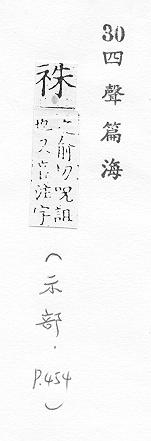 30四聲篇海
祩
之俞切呪詛
也又音注字
（示部．P.454）